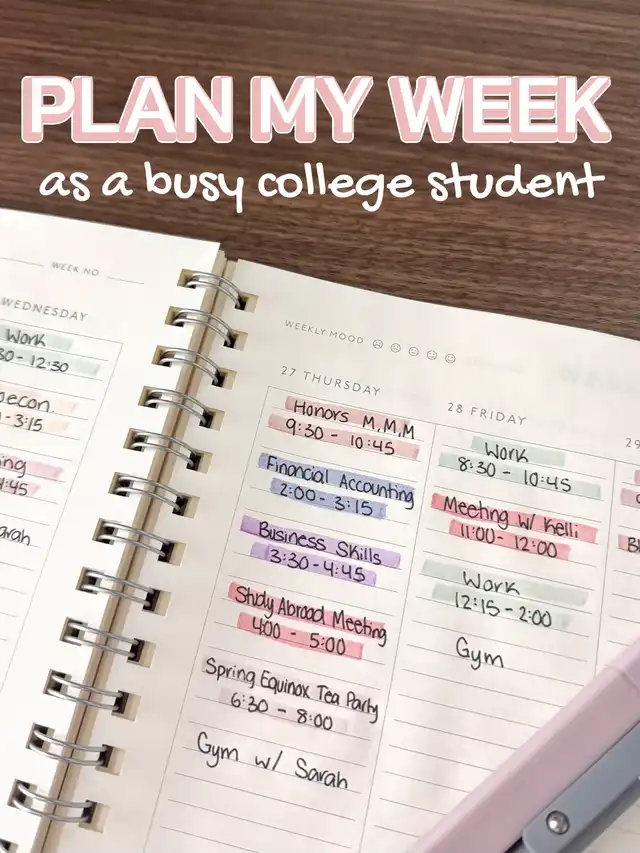 PLAN MY WEEK
as a busy college student
WEEK NO
WEDNESDAY
Work
30 - 12:30
econ.
- 3:15
ing
4:45
arah
WEEKLY MOOD
27 THURSDAY
Honors M,M,M
9:30 - 10:45
Financial Accounting
2:00 - 3:15
Business Skills
3:30 - 4:45
Study Abroad Meeting
4:00 - 5:00
Spring Equinox Tea Party
6:30 - 8:00
Gym w/ Sarah
28 FRIDAY
Work
8:30 - 10:45
Meeting w/ Kelli
11:00 - 12:00
Work
12:15 - 2:00
Gym
29